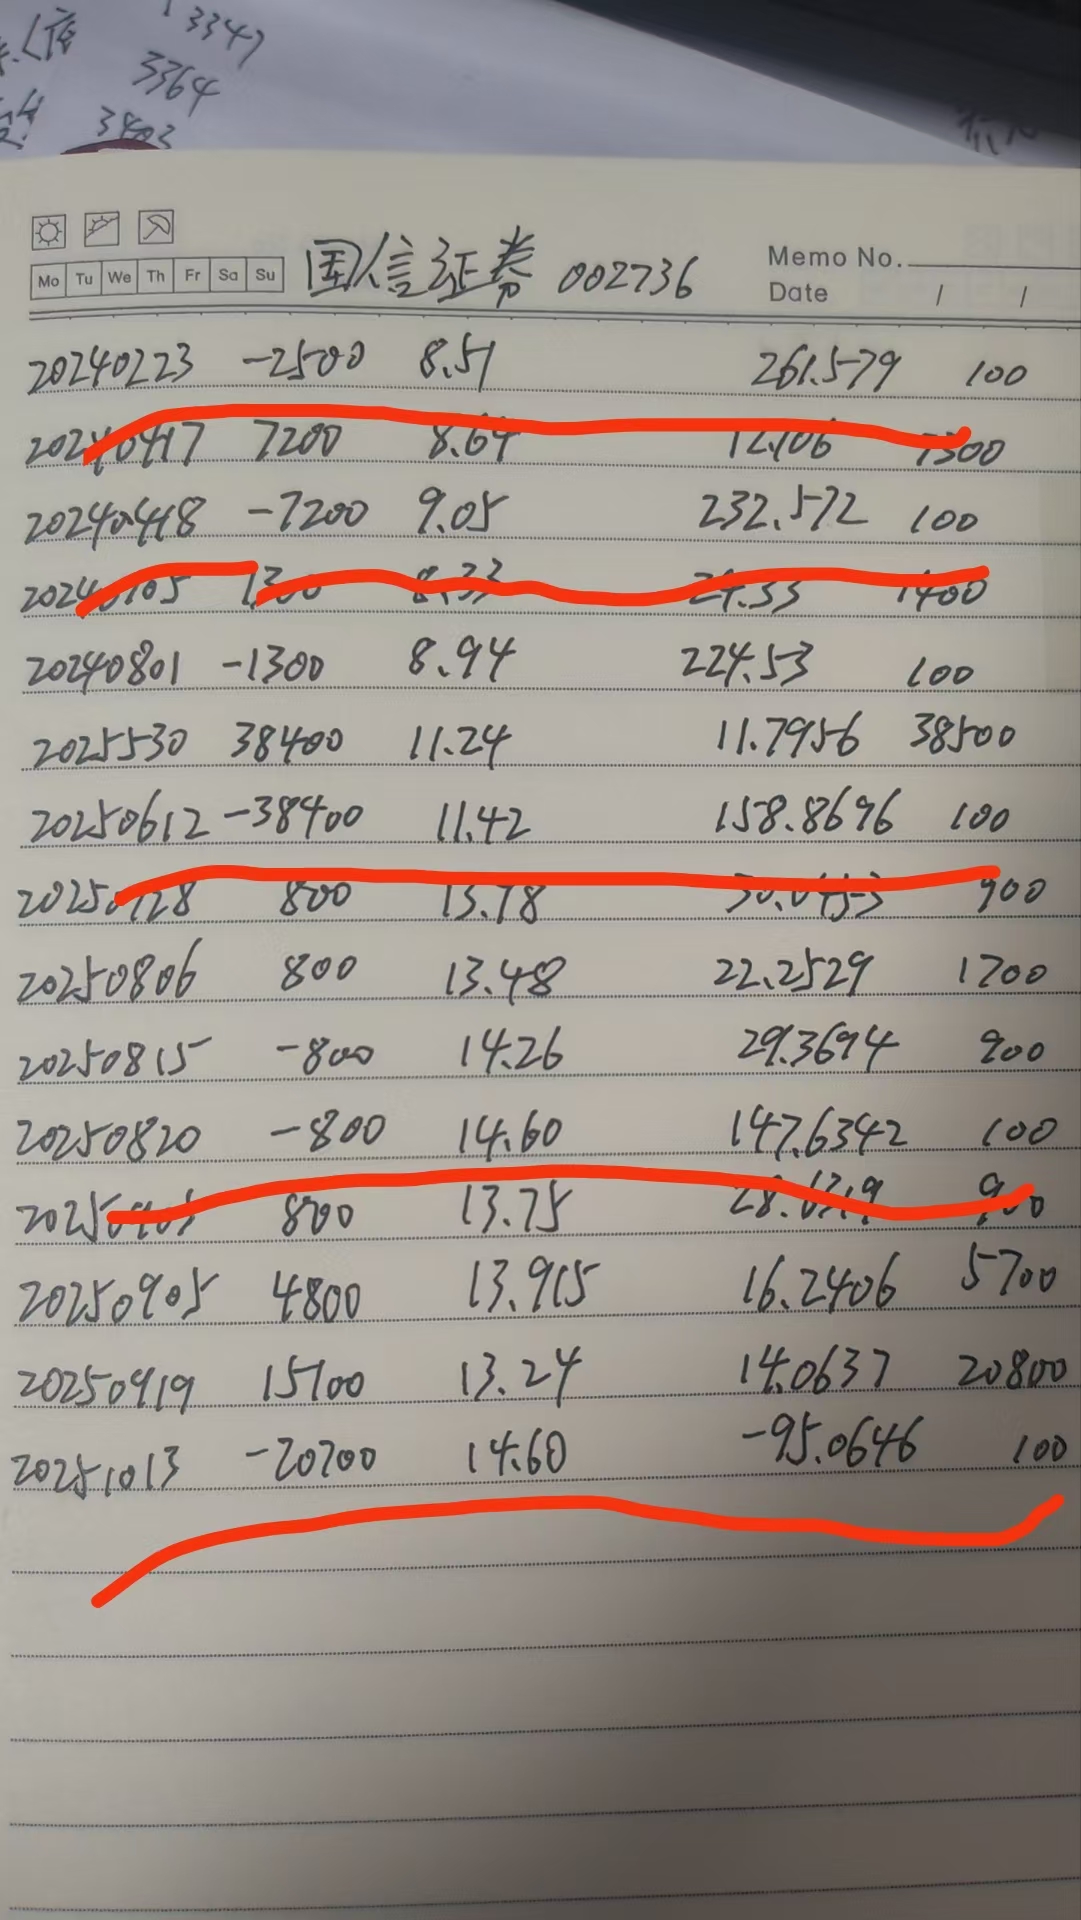 3347
3364
3403
Mo Tu We Th Fr Sa Su
国信证券 002736
Memo No.
Date / /
20240223 -2500 8.51 261.579 100
20240417 7200 8.64 12.106 7300
20240418 -7200 9.05 232.572 100
1300 8.33 24.33 1400
20240801 -1300 8.94 224.53 100
2025530 38400 11.24 11.7956 38500
20250612 -38400 11.42 158.8696 100
20250728 800 13.78 30.0453 900
20250806 800 13.48 22.2529 1700
20250815 -800 14.26 29.3694 900
20250820 -800 14.60 147.6342 100
800 13.75 28.6319 900
20250905 4800 13.915 16.2406 5700
20250919 15100 13.24 14.0637 20800
20251013 -20700 14.60 -95.0646 100